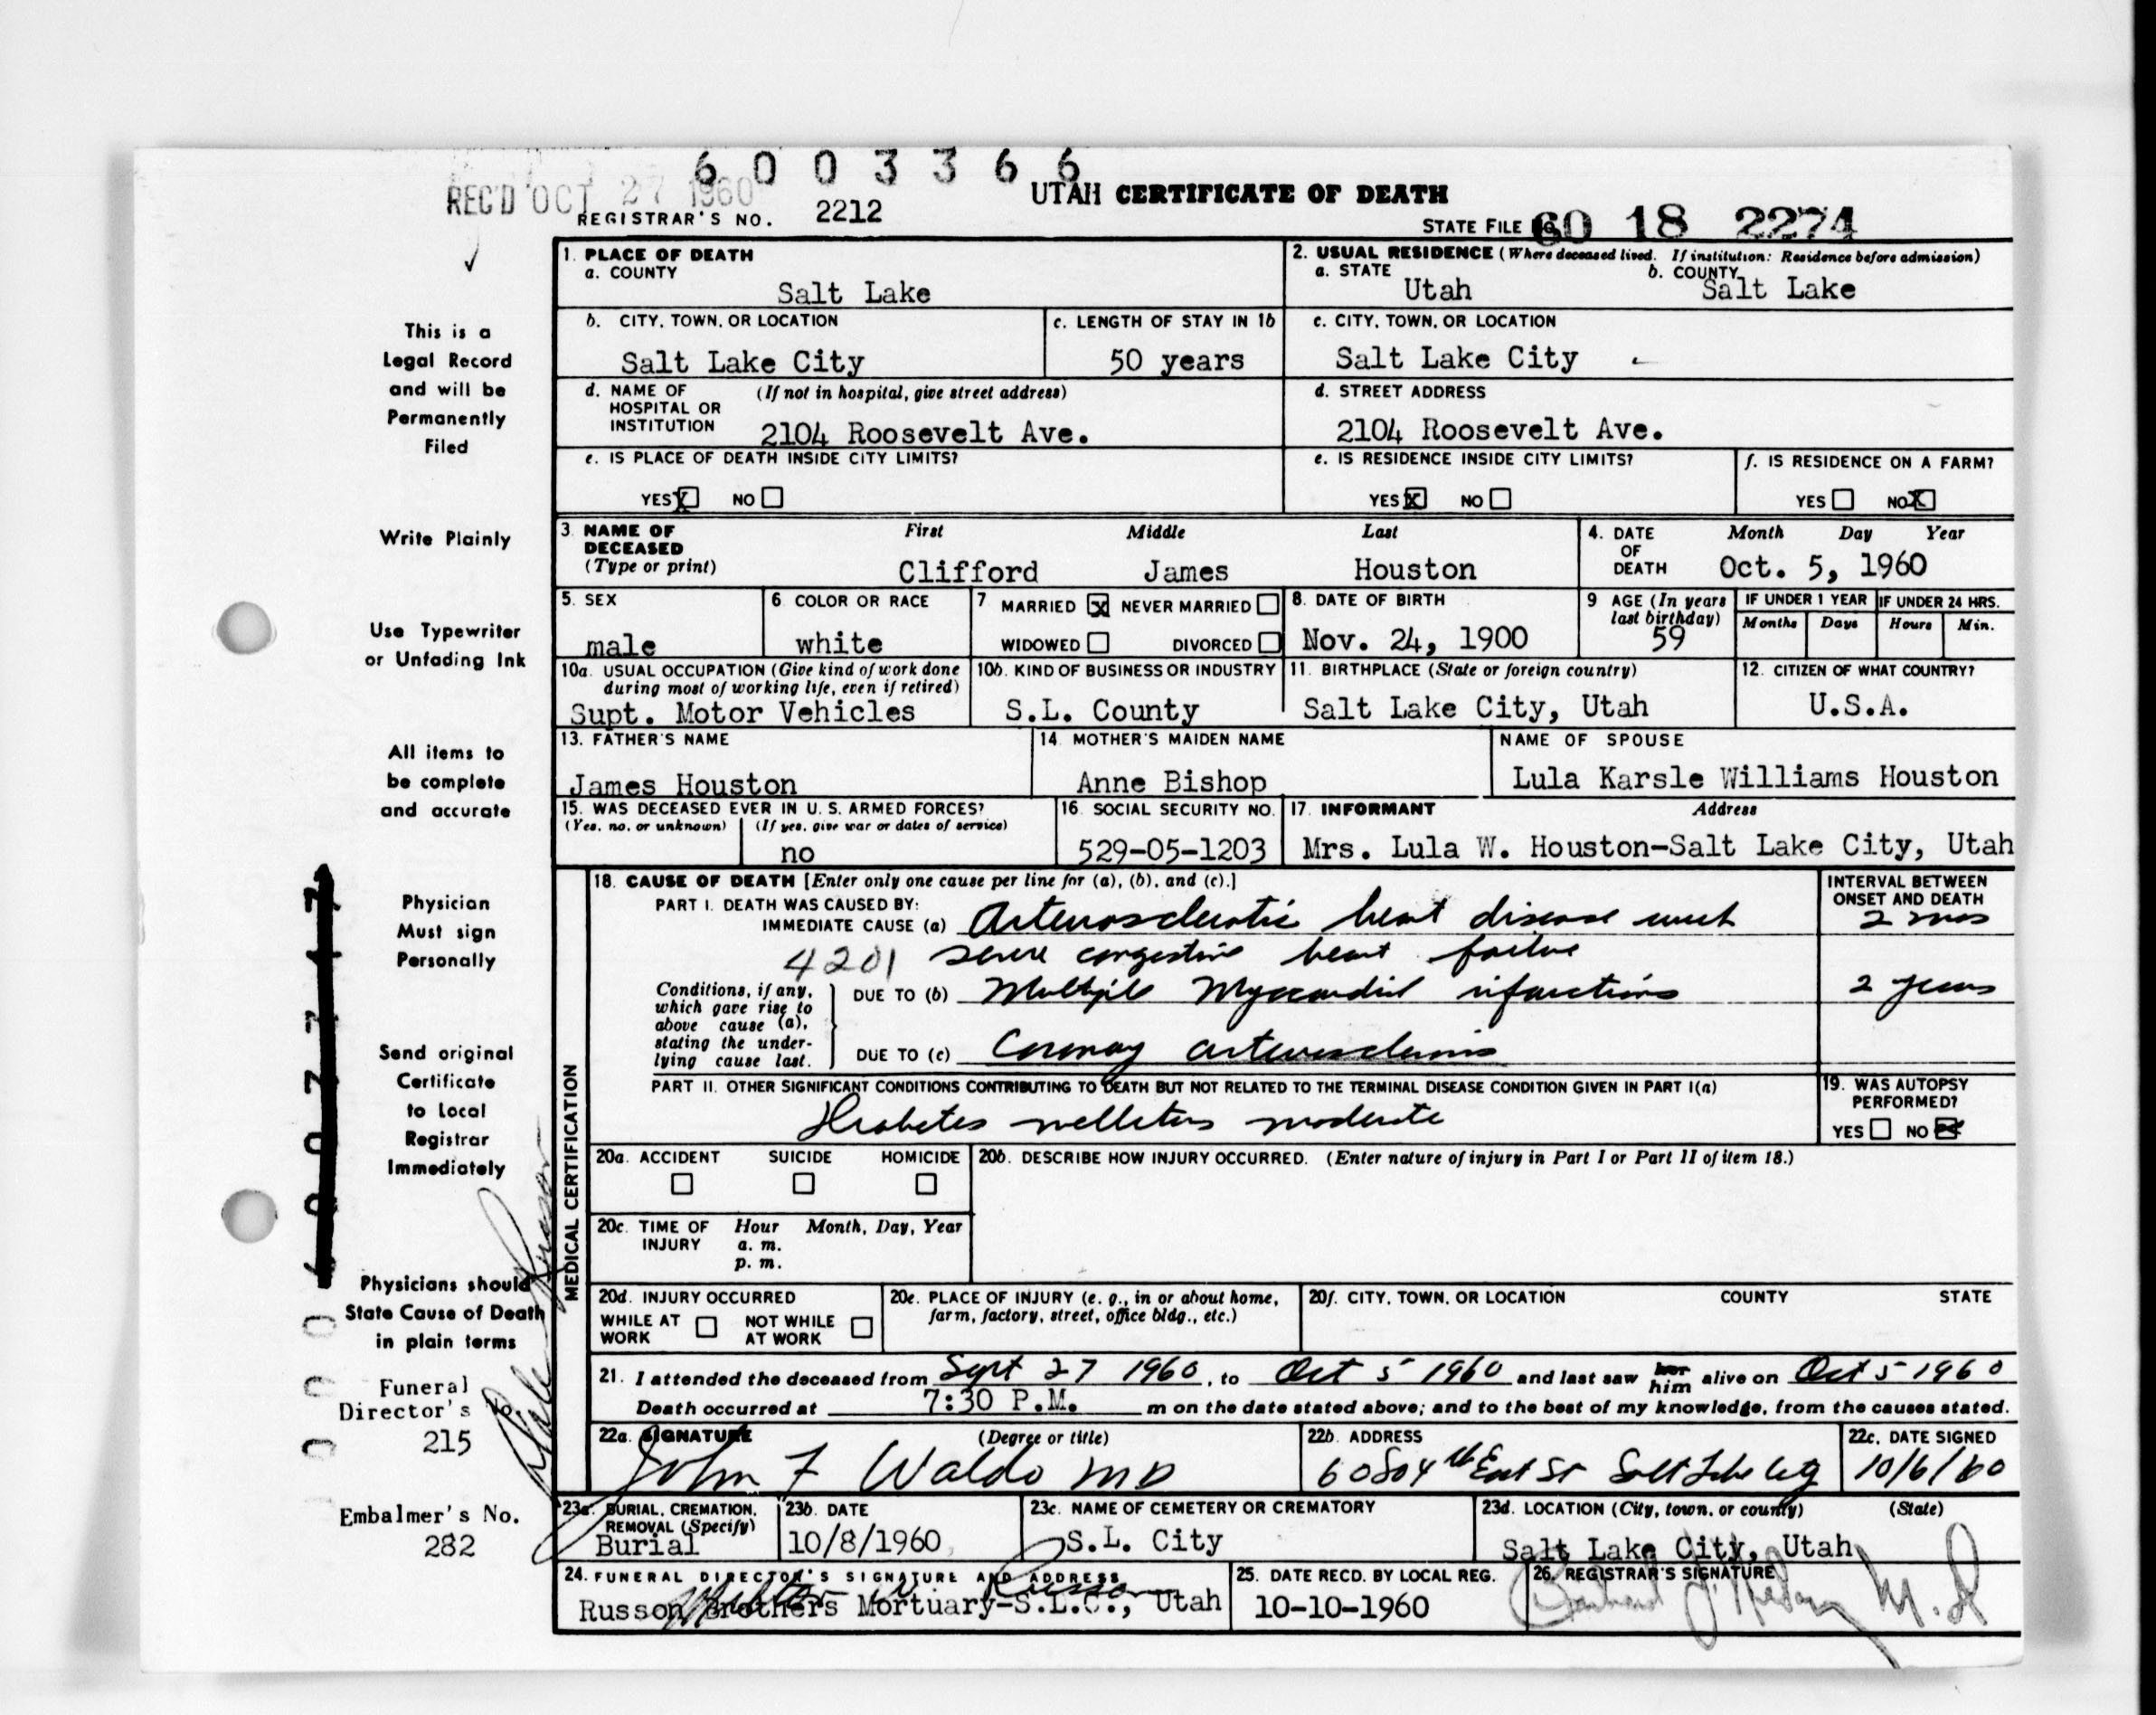 6003366
REC'D OCT 27 1960
UTAH CERTIFICATE OF DEATH
REGISTRAR'S NO. 2212
STATE FILE NO. 60 18 2274
This is a
Legal Record
and will be
Permanently
Filed
Write Plainly
Use Typewriter
or Unfading Ink
All items to
be complete
and accurate
Physician
Must sign
Personally
Send original
Certificate
to Local
Registrar
Immediately
Physicians should
State Cause of Death
in plain terms
Funeral
Director's No.
215
Embalmer's No.
282
1. PLACE OF DEATH
a. COUNTY
Salt Lake
2. USUAL RESIDENCE (Where deceased lived. If institution: Residence before admission)
a. STATE
Utah
b. COUNTY
Salt Lake
b. CITY, TOWN, OR LOCATION
Salt Lake City
c. LENGTH OF STAY IN 1b
50 years
c. CITY, TOWN, OR LOCATION
Salt Lake City
d. NAME OF HOSPITAL OR INSTITUTION (If not in hospital, give street address)
2104 Roosevelt Ave.
d. STREET ADDRESS
2104 Roosevelt Ave.
e. IS PLACE OF DEATH INSIDE CITY LIMITS?
YES X NO
e. IS RESIDENCE INSIDE CITY LIMITS?
YES X NO
f. IS RESIDENCE ON A FARM?
YES NO X
3. NAME OF DECEASED (Type or print)
First Middle Last
Clifford James Houston
4. DATE OF DEATH Month Day Year
Oct. 5, 1960
5. SEX
male
6. COLOR OR RACE
white
7. MARRIED X NEVER MARRIED
WIDOWED DIVORCED
8. DATE OF BIRTH
Nov. 24, 1900
9. AGE (In years last birthday)
59
IF UNDER 1 YEAR
Months Days
IF UNDER 24 HRS.
Hours Min.
10a. USUAL OCCUPATION (Give kind of work done during most of working life, even if retired)
Supt. Motor Vehicles
10b. KIND OF BUSINESS OR INDUSTRY
S.L. County
11. BIRTHPLACE (State or foreign country)
Salt Lake City, Utah
12. CITIZEN OF WHAT COUNTRY?
U.S.A.
13. FATHER'S NAME
James Houston
14. MOTHER'S MAIDEN NAME
Anne Bishop
NAME OF SPOUSE
Lula Karsle Williams Houston
15. WAS DECEASED EVER IN U. S. ARMED FORCES?
(Yes, no, or unknown) (If yes, give war or dates of service)
no
16. SOCIAL SECURITY NO.
529-05-1203
17. INFORMANT Address
Mrs. Lula W. Houston-Salt Lake City, Utah
MEDICAL CERTIFICATION
18. CAUSE OF DEATH [Enter only one cause per line for (a), (b), and (c).]
INTERVAL BETWEEN ONSET AND DEATH
PART I. DEATH WAS CAUSED BY:
IMMEDIATE CAUSE (a) Arteriosclerotic heart disease with
2 mos
4201 severe congestive heart failure
Conditions, if any, which gave rise to above cause (a), stating the underlying cause last.
DUE TO (b) Multiple Myocardial infarctions
2 years
DUE TO (c) Coronary arteriosclerosis
PART II. OTHER SIGNIFICANT CONDITIONS CONTRIBUTING TO DEATH BUT NOT RELATED TO THE TERMINAL DISEASE CONDITION GIVEN IN PART I(a)
Diabetes mellitus moderate
19. WAS AUTOPSY PERFORMED?
YES NO X
20a. ACCIDENT SUICIDE HOMICIDE
20b. DESCRIBE HOW INJURY OCCURRED. (Enter nature of injury in Part I or Part II of item 18.)
20c. TIME OF INJURY Hour Month, Day, Year
a. m.
p. m.
20d. INJURY OCCURRED
WHILE AT WORK NOT WHILE AT WORK
20e. PLACE OF INJURY (e. g., in or about home, farm, factory, street, office bldg., etc.)
20f. CITY, TOWN, OR LOCATION COUNTY STATE
21. I attended the deceased from Sept 27 1960, to Oct 5 1960 and last saw her him alive on Oct 5 1960
Death occurred at 7:30 P.M. m on the date stated above; and to the best of my knowledge, from the causes stated.
22a. SIGNATURE (Degree or title)
John F Waldo MD
22b. ADDRESS
608 04th East St Salt Lake City
22c. DATE SIGNED
10/6/60
23a. BURIAL, CREMATION, REMOVAL (Specify)
Burial
23b. DATE
10/8/1960
23c. NAME OF CEMETERY OR CREMATORY
S.L. City
23d. LOCATION (City, town, or county) (State)
Salt Lake City, Utah
24. FUNERAL DIRECTOR'S SIGNATURE AND ADDRESS
Russon Brothers Mortuary-S.L.C., Utah
25. DATE RECD. BY LOCAL REG.
10-10-1960
26. REGISTRAR'S SIGNATURE
M.D